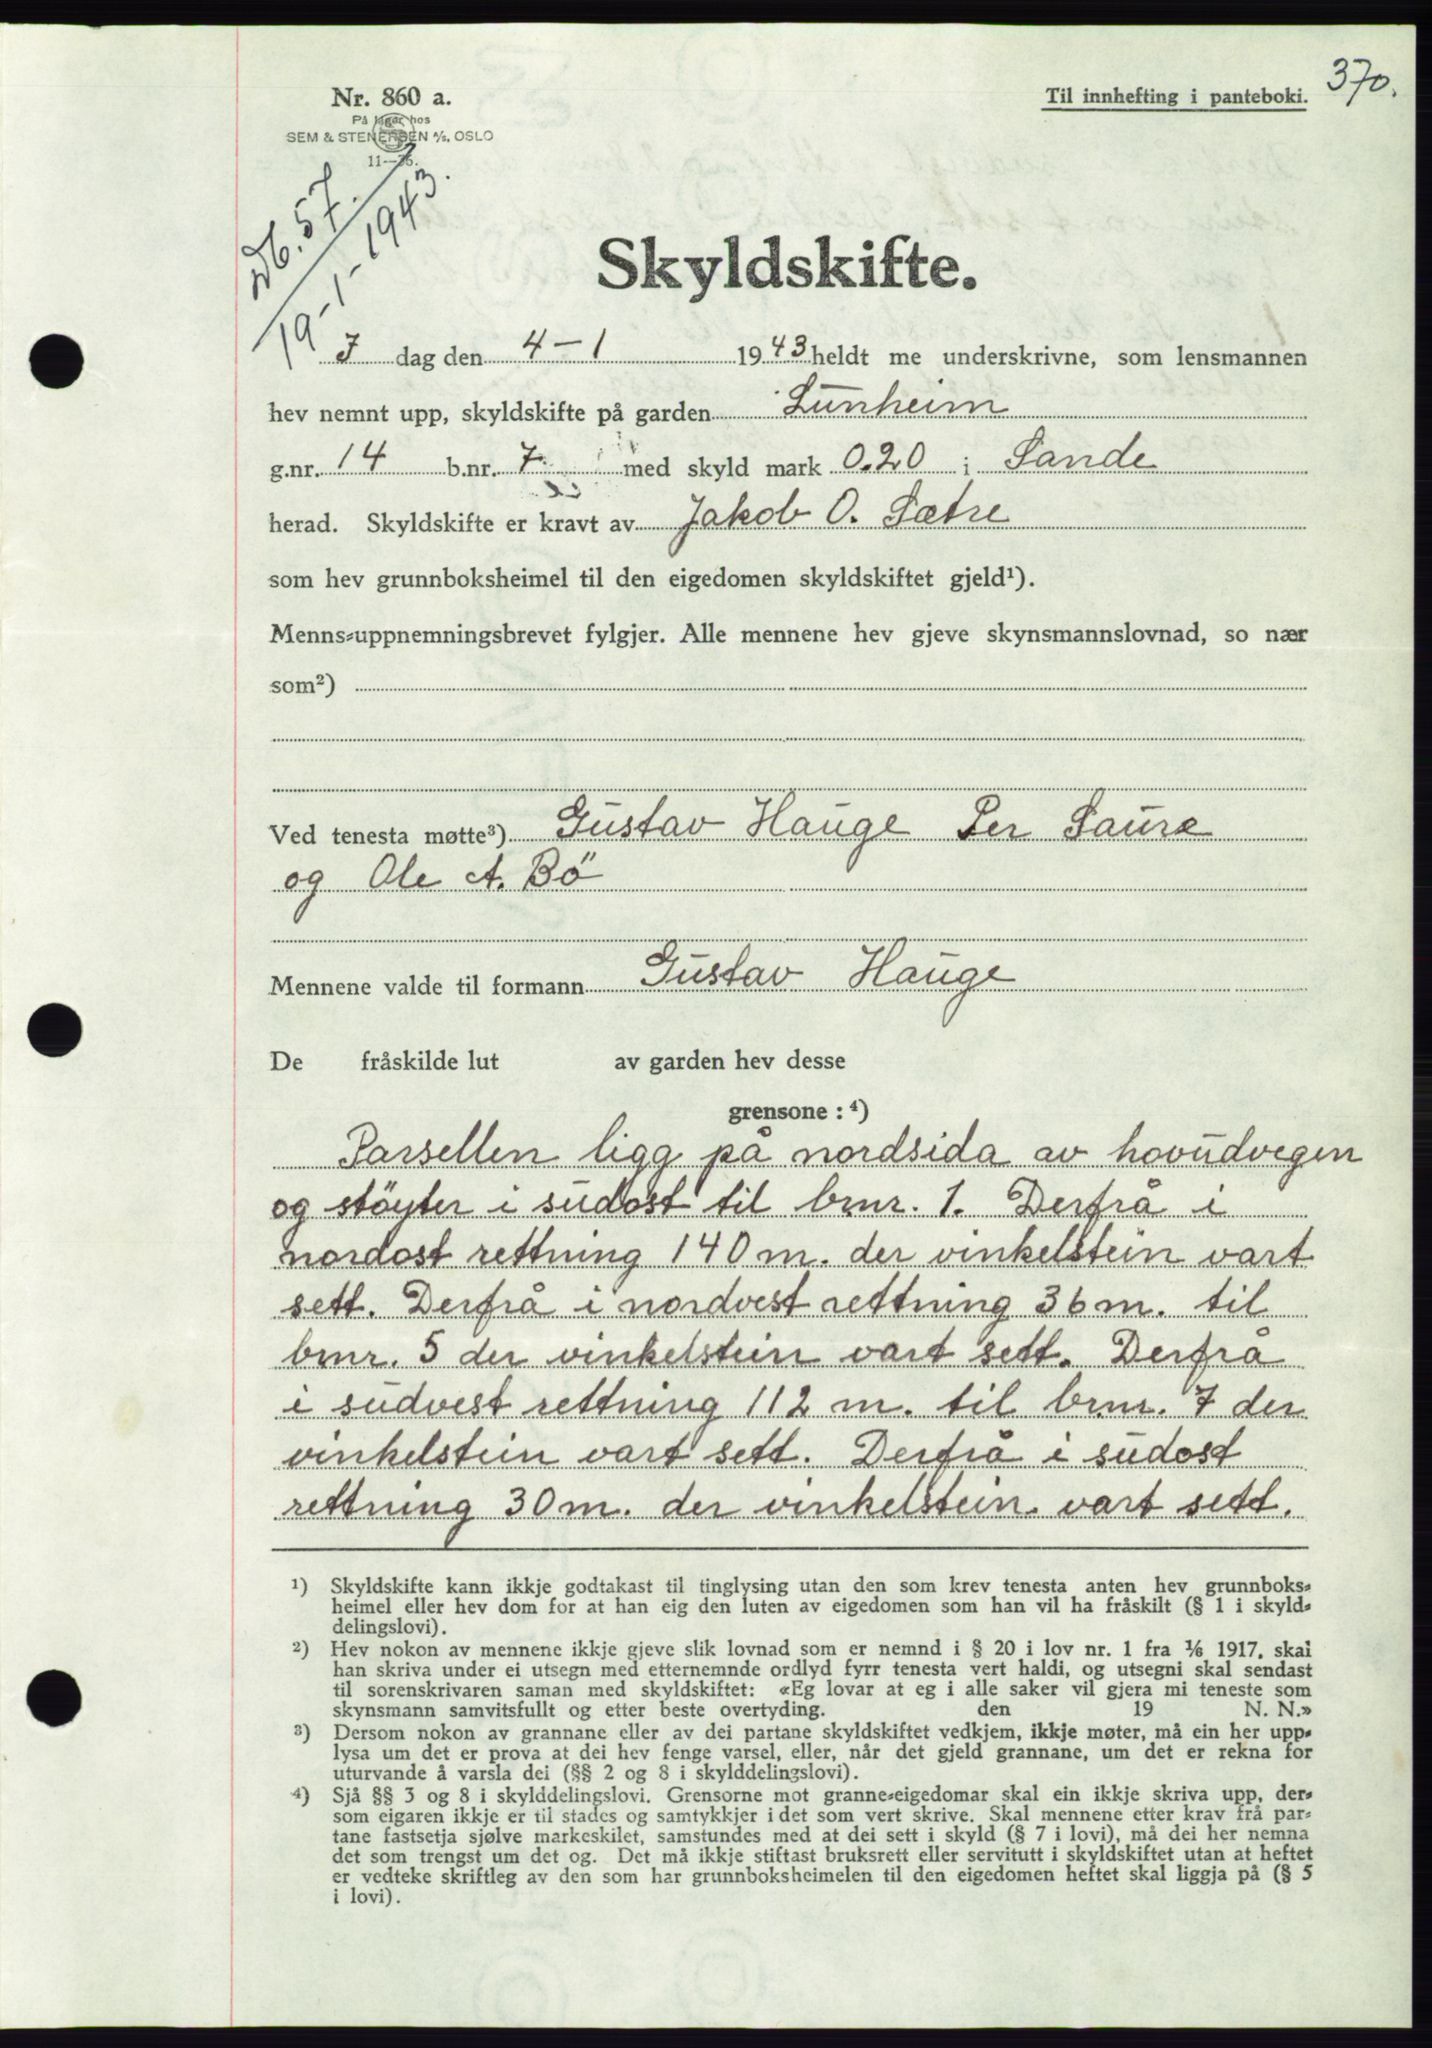 370.
Nr. 860 a.
Til innhefting i panteboki.
På lager hos
SEM & STENERSEN A/S, OSLO
11—36.
Db. 57.
19-1-1943.
Skyldskifte.
I dag den 4-1 1943 heldt me underskrivne, som lensmannen
hev nemnt upp, skyldskifte på garden Lunheim
g.nr. 14 b.nr. 7 med skyld mark 0.20 i Sande
herad. Skyldskifte er kravt av Jakob O. Sætre
som hev grunnboksheimel til den eigedomen skyldskiftet gjeld¹).
Menns-uppnemningsbrevet fylgjer. Alle mennene hev gjeve skynsmannslovnad, so nær
som²)
Ved tenesta møtte³) Gustav Hauge Per Saure
og Ole A. Bö
Mennene valde til formann Gustav Hauge
De fråskilde lut av garden hev desse
grensone : ⁴)
Parsellen ligg på nordsida av hovudvegen
og støyter i sudost til brnr. 1. Derfrå i
nordost rettning 140 m. der vinkelstein vart
sett. Derfrå i nordvest rettning 36 m. til
brnr. 5 der vinkelstein vart sett. Derfrå
i sudvest rettning 112 m. til brnr. 7 der
vinkelstein vart sett. Derfrå i sudost
rettning 30 m. der vinkelstein vart sett.
¹) Skyldskifte kann ikkje godtakast til tinglysing utan den som krev tenesta anten hev grunnboks-
heimel eller hev dom for at han eig den luten av eigedomen som han vil ha fråskilt (§ 1 i skyld-
delingslovi).
²) Hev nokon av mennene ikkje gjeve slik lovnad som er nemnd i § 20 i lov nr. 1 fra 1/6 1917, skal
han skriva under ei utsegn med etternemnde ordlyd fyrr tenesta vert haldi, og utsegni skal sendast
til sorenskrivaren saman med skyldskiftet: «Eg lovar at eg i alle saker vil gjera mi teneste som
skynsmann samvitsfullt og etter beste overtyding. den 19 N. N.»
³) Dersom nokon av grannane eller av dei partane skyldskiftet vedkjem, ikkje møter, må ein her upp-
lysa um det er prova at dei hev fenge varsel, eller, når det gjeld grannane, um det er rekna for
uturvande å varsla dei (§§ 2 og 8 i skylddelingslovi).
⁴) Sjå §§ 3 og 8 i skylddelingslovi. Grensorne mot granne-eigedomar skal ein ikkje skriva upp, der-
som eigaren ikkje er til stades og samtykkjer i det som vert skrive. Skal mennene etter krav frå par-
tane fastsetja sjølve markeskilet, samstundes med at dei sett i skyld (§ 7 i lovi), må dei her nemna
det som trengst um det og. Det må ikkje stiftast bruksrett eller servitutt i skyldskiftet utan at heftet
er vedteke skriftleg av den som har grunnboksheimelen til den eigedomen heftet skal liggja på (§ 5
i lovi).